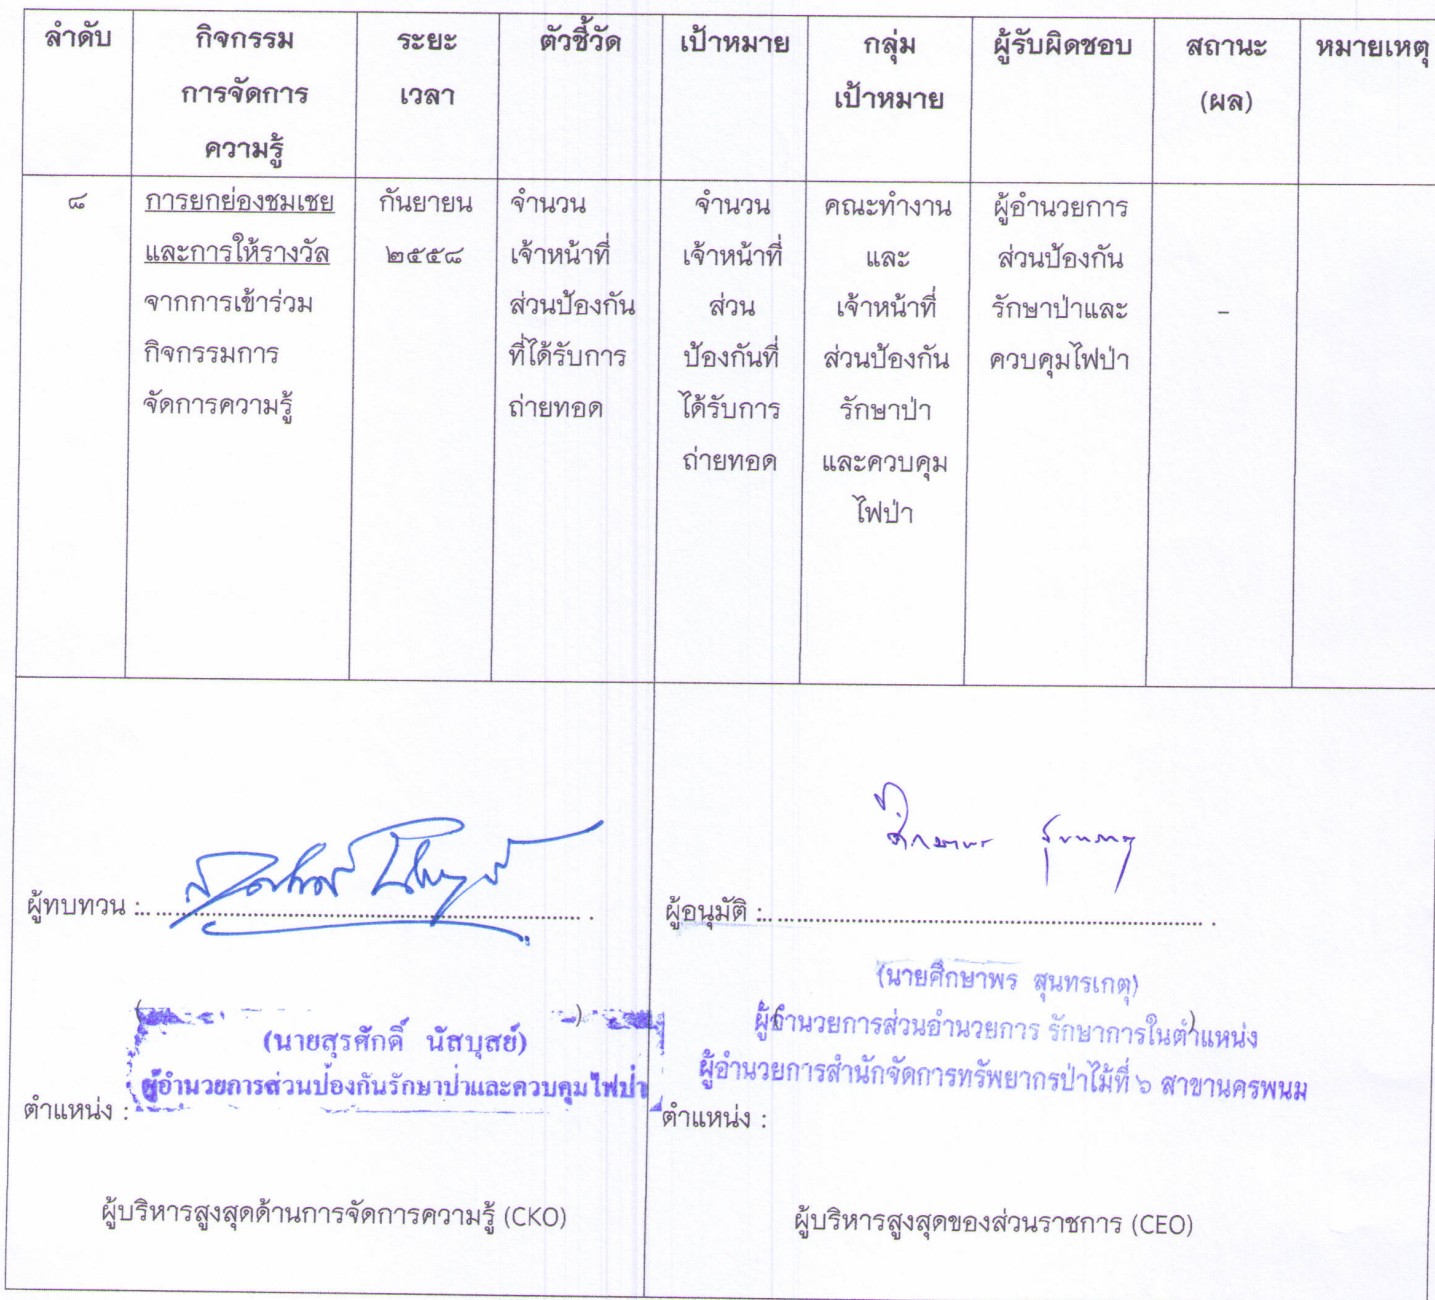 ลำดับ
กิจกรรม
การจัดการ
ความรู้
ระยะ
เวลา
ตัวชี้วัด
เป้าหมาย
กลุ่ม
เป้าหมาย
ผู้รับผิดชอบ
สถานะ
(ผล)
หมายเหตุ
๘
การยกย่องชมเชย
และการให้รางวัล
จากการเข้าร่วม
กิจกรรมการ
จัดการความรู้
กันยายน
๒๕๕๘
จำนวน
เจ้าหน้าที่
ส่วนป้องกัน
ที่ได้รับการ
ถ่ายทอด
จำนวน
เจ้าหน้าที่
ส่วน
ป้องกันที่
ได้รับการ
ถ่ายทอด
คณะทำงาน
และ
เจ้าหน้าที่
ส่วนป้องกัน
รักษาป่า
และควบคุม
ไฟป่า
ผู้อำนวยการ
ส่วนป้องกัน
รักษาป่าและ
ควบคุมไฟป่า
-
ผู้ทบทวน :
(นายสุรศักดิ์ นัสบุสย์)
ผู้อำนวยการส่วนป้องกันรักษาป่าและควบคุมไฟป่า
ตำแหน่ง :
ผู้บริหารสูงสุดด้านการจัดการความรู้ (CKO)
ผู้อนุมัติ :
(นายศึกษาพร สุนทรเกตุ)
ผู้อำนวยการส่วนอำนวยการ รักษาการในตำแหน่ง
ผู้อำนวยการสำนักจัดการทรัพยากรป่าไม้ที่ ๖ สาขานครพนม
ตำแหน่ง :
ผู้บริหารสูงสุดของส่วนราชการ (CEO)